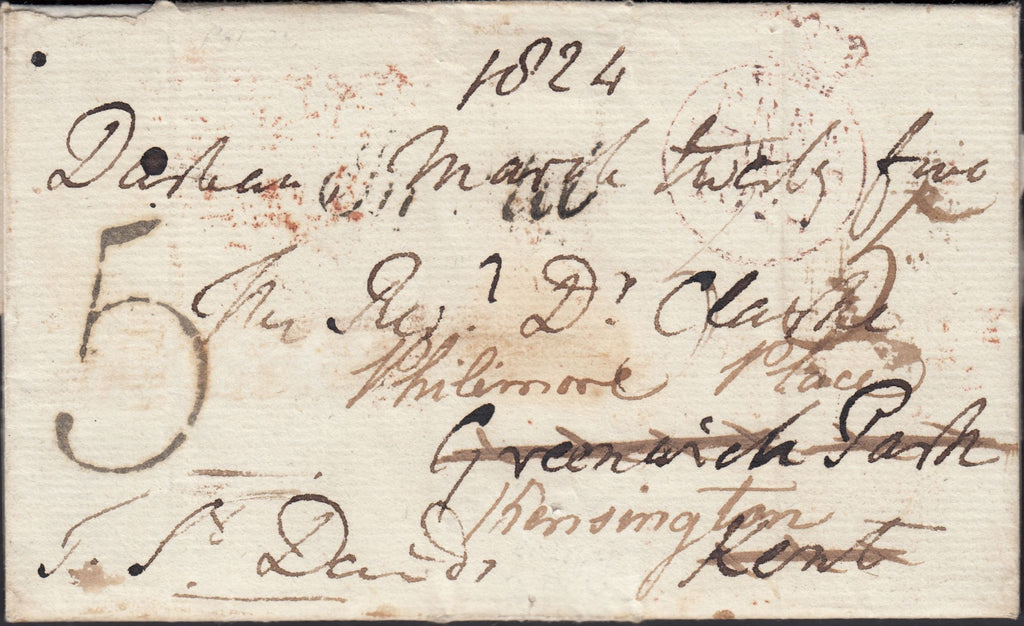 1824
Durham March twenty five
5
The Rev.d Dr Clarke
Philimore Place
Greenwich Park
Kensington
Kent
T. St Davids